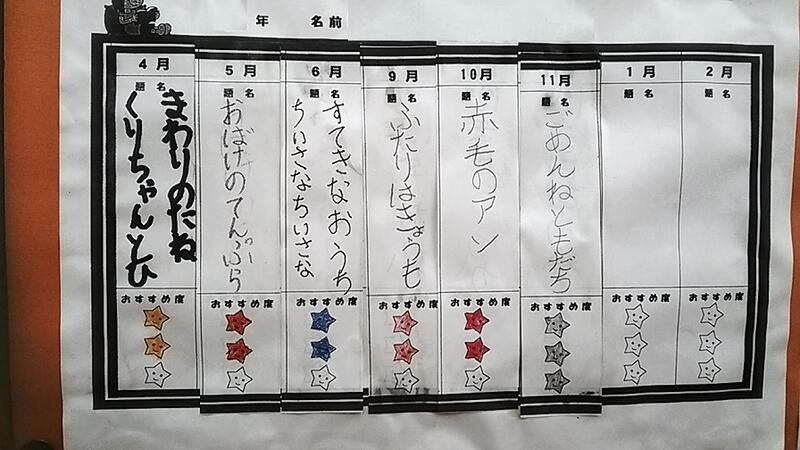 年 名前
4月
題名
くりちゃんとひ
まわりのたね
おすすめ度
5月
題名
おばけのてんぷら
おすすめ度
6月
題名
ちいさなちいさな
すてきなおうち
おすすめ度
9月
題名
ふたりはきょうも
おすすめ度
10月
題名
赤毛のアン
おすすめ度
11月
題名
ごめんねともだち
おすすめ度
1月
題名
おすすめ度
2月
題名
おすすめ度